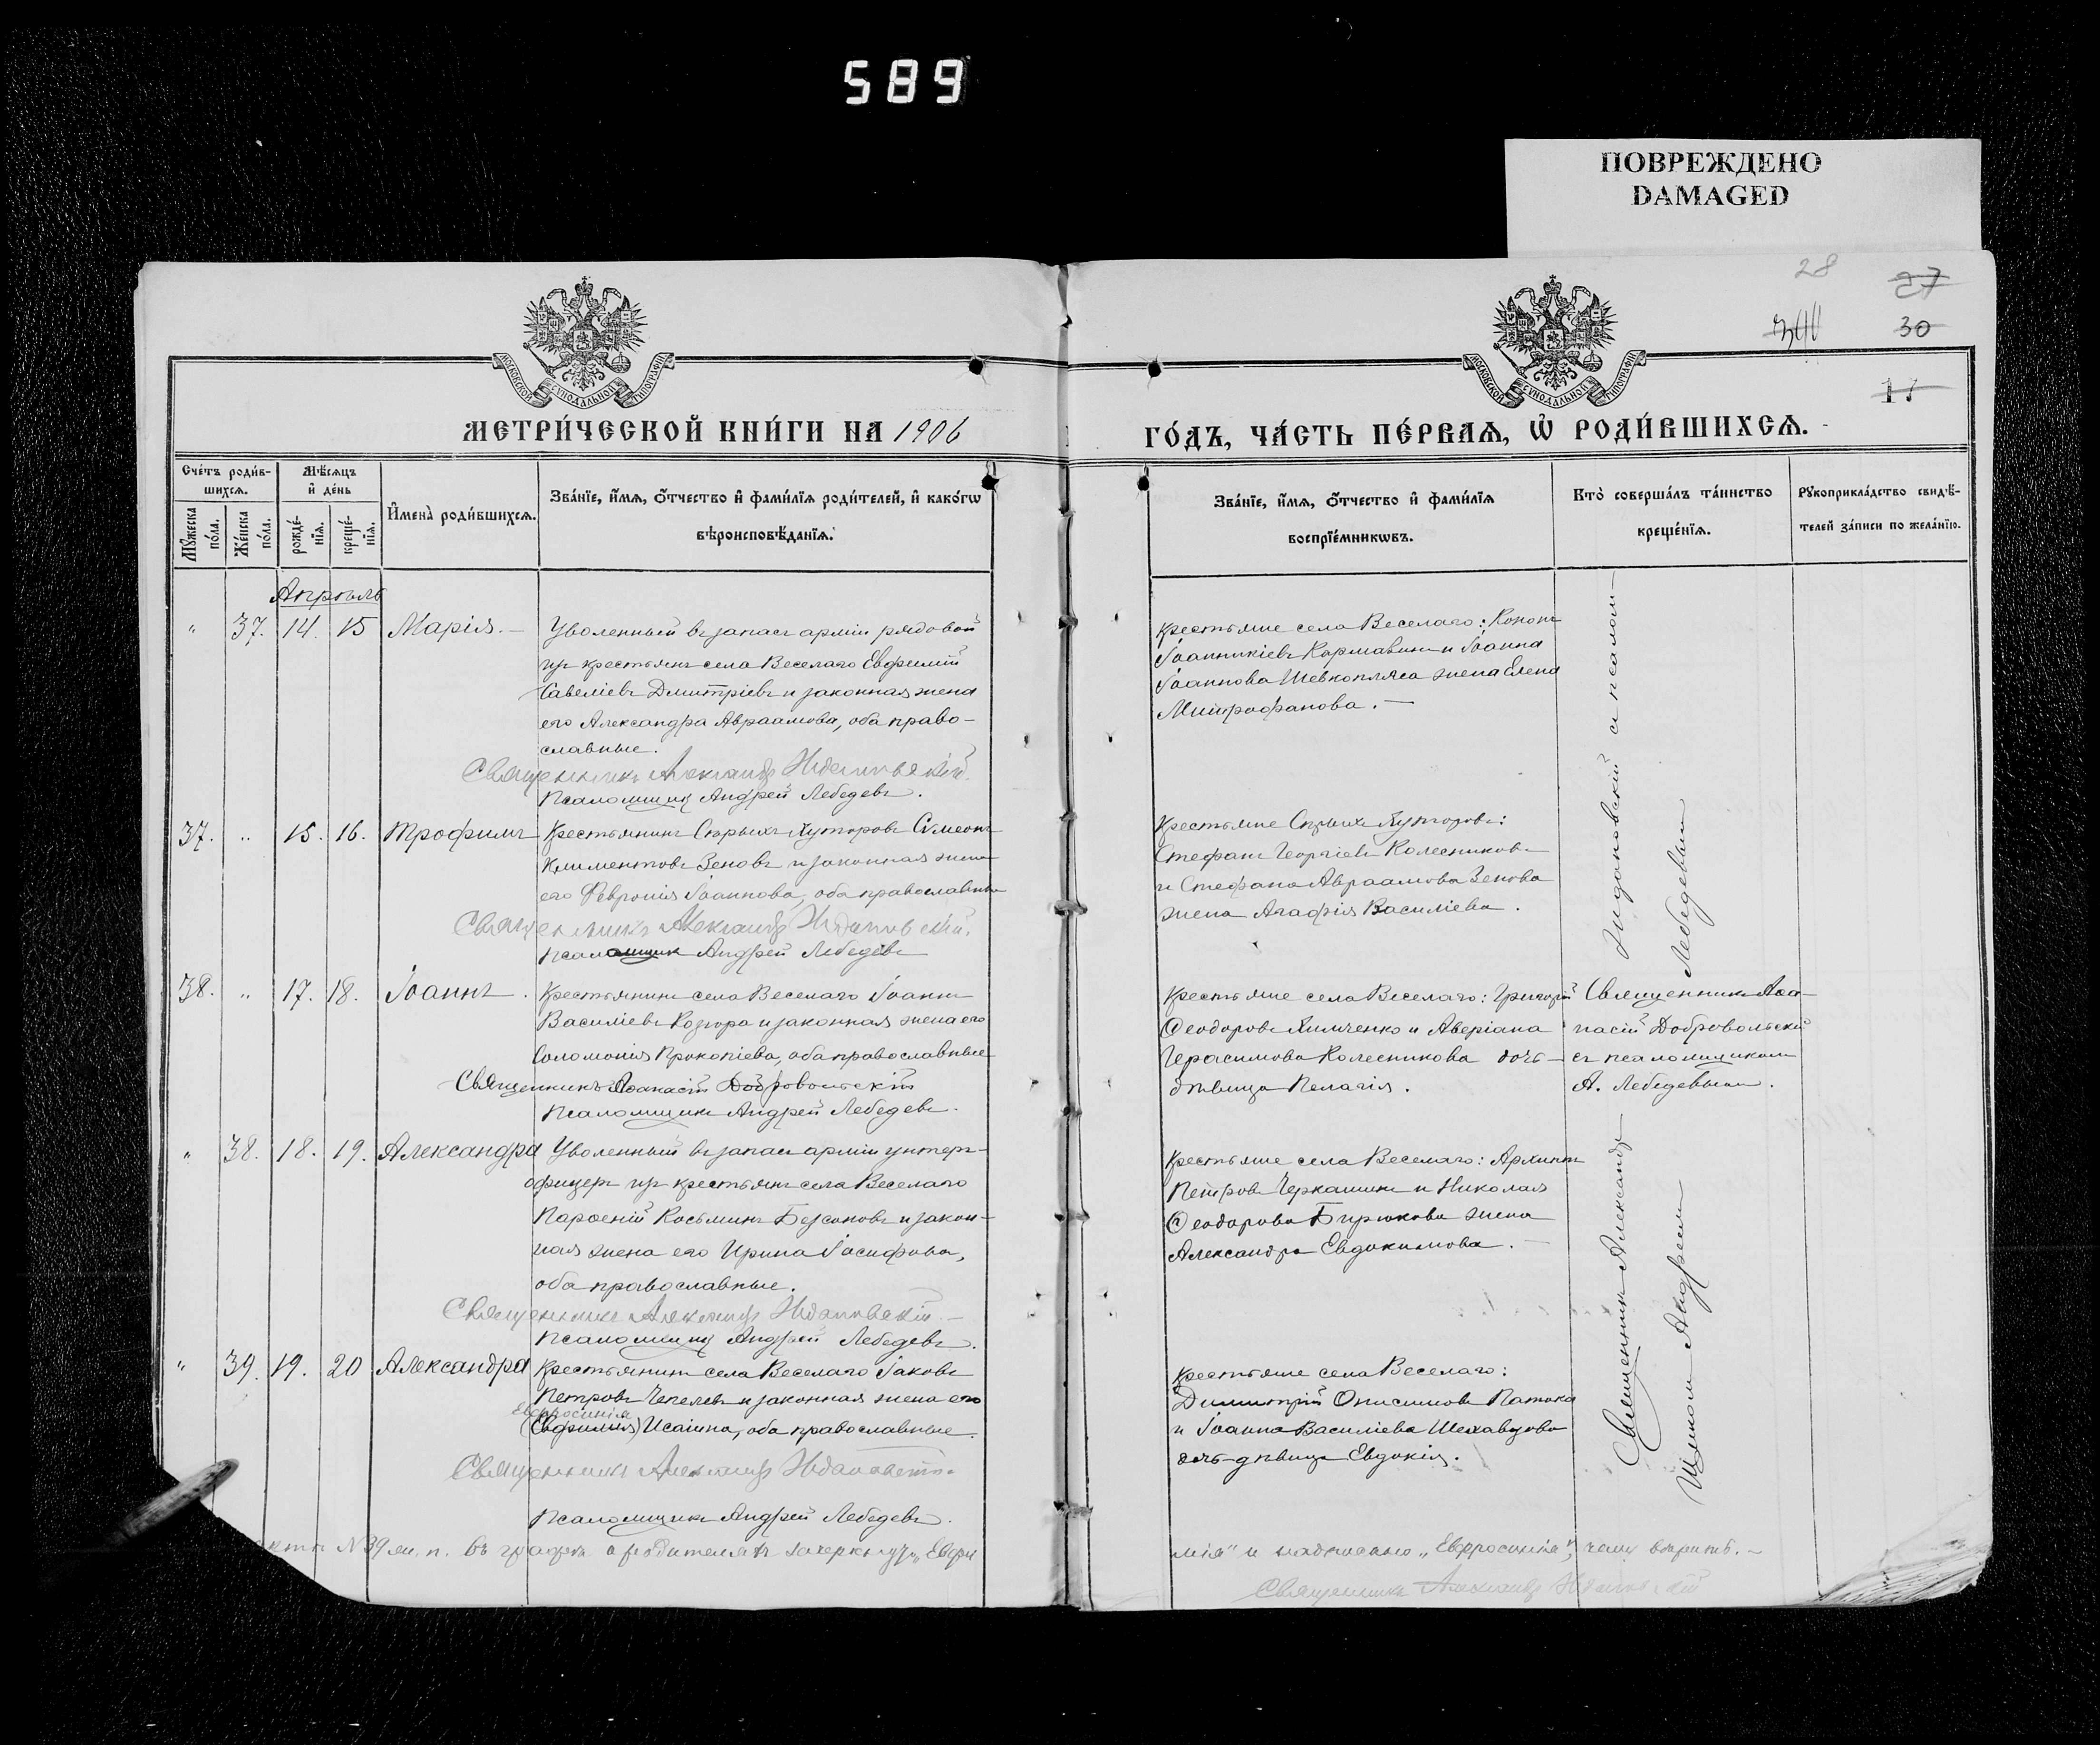 589
ПОВРЕЖДЕНО
DAMAGED
28
27
30
17
МОСКОВСКОЙ СѴНОДАЛЬНОЙ ТИПОГРАФІИ
МОСКОВСКОЙ СѴНОДАЛЬНОЙ ТИПОГРАФІИ
МЕТРИ́ЧЕСКОЙ КНИ́ГИ НА 1906
ГО́ДЪ, ЧА́СТЬ ПЕ́РВАѦ, Ѡ РОДИ́ВШИХСѦ.
Сче́тъ роди́в-
шихсѧ.
Мѣ́сѧцъ
и҆ де́нь
Мꙋ́жеска по́ла.
Же́нска по́ла.
рожде́-
нїѧ.
креще́-
нїѧ.
И҆мена̀ роди́вшихсѧ.
Зва́нїе, и҆́мѧ, ѻ҆́тчество и҆ фами́лїѧ роди́телей, и҆ како́гѡ
вѣроисповѣ́данїѧ.
Зва́нїе, и҆́мѧ, ѻ҆́тчество и҆ фами́лїѧ
воспрїе́мникѡвъ.
Кто̀ соверша́лъ та́инство
креще́нїѧ.
Рꙋкоприкла́дство свидѣ́-
телей за́писи по жела́нїю.
Апрѣль
" 37. 14. 15 Марія. –
Уволенный въ запасъ арміи рядовой
изъ крестьянъ села Веселаго Евфимій
Савеліевъ Димитріевъ и законная жена
его Александра Авраамова, оба право-
славные.
Священникъ Александръ Ждановскій.
Псаломщикъ Андрей Лебедевъ.
Крестьяне села Веселаго: Кононъ
Іоанникіевъ Кармавинъ и Іоанна
Іоаннова Шевкопляса жена Елена
Митрофанова. –
Ждановскій съ псалом-
Лебедевым
37. " 15. 16. Трофимъ
Крестьянинъ Сѣрыхъ Хуторовъ Сѵмеонъ
Климентовъ Зеновъ и законная жена
его Февронія Іоаннова, оба православные
Священникъ Александръ Ждановскій.
Псаломщик Андрей Лебедевъ
Крестьяне Сѣрыхъ Хуторовъ:
Стефанъ Георгіевъ Колесниковъ
и Стефана Авраамова Зенова
жена Агафія Василіева.
38. " 17. 18. Іоаннъ.
Крестьянинъ села Веселаго Іоаннъ
Василіевъ Козюра и законная жена его
Соломонія Прокопіева, оба православные
Священникъ Аѳанасій Добровольскій
Псаломщикъ Андрей Лебедевъ.
Крестьяне села Веселаго: Григорій
Ѳеодоровъ Химченко и Аверіана
Герасимова Колесникова дочь –
дѣвица Пелагія.
Священникъ Аѳа-
насій Добровольскій
съ псаломщикомъ
А. Лебедевымъ.
" 38. 18. 19. Александра
Уволенный въ запасъ арміи унтеръ-
офицеръ изъ крестьянъ села Веселаго
Парѳеній Косьминъ Безсоновъ и закон-
ная жена его Ирина Іосифова,
оба православные.
Священникъ Александръ Ждановскій. –
Псаломщикъ Андрей Лебедевъ.
Крестьяне села Веселаго: Архиппъ
Петровъ Черкашинъ и Николая
Ѳеодорова Бирюкова жена
Александра Евдокимова. –
Священник Александръ
Андреем
" 39. 19. 20 Александра
Крестьянинъ села Веселаго Іаковъ
Петровъ Чепелевъ и законная жена его
Евфросинія
(Евфимія) Исаіина, оба православные.
Священникъ Александръ Ждановскій.
Псаломщикъ Андрей Лебедевъ.
Крестьяне села Веселаго:
Димитрій Онисимовъ Патока
и Іоанна Василіева Шехавцова
дочь-дѣвица Евдокія.
актѣ № 39 ж. п. въ графѣ о родителяхъ зачеркнуто „Евфи
мія" и надписано „Евфросинія", чему вѣрить. –
Священникъ Александръ Ждановскій